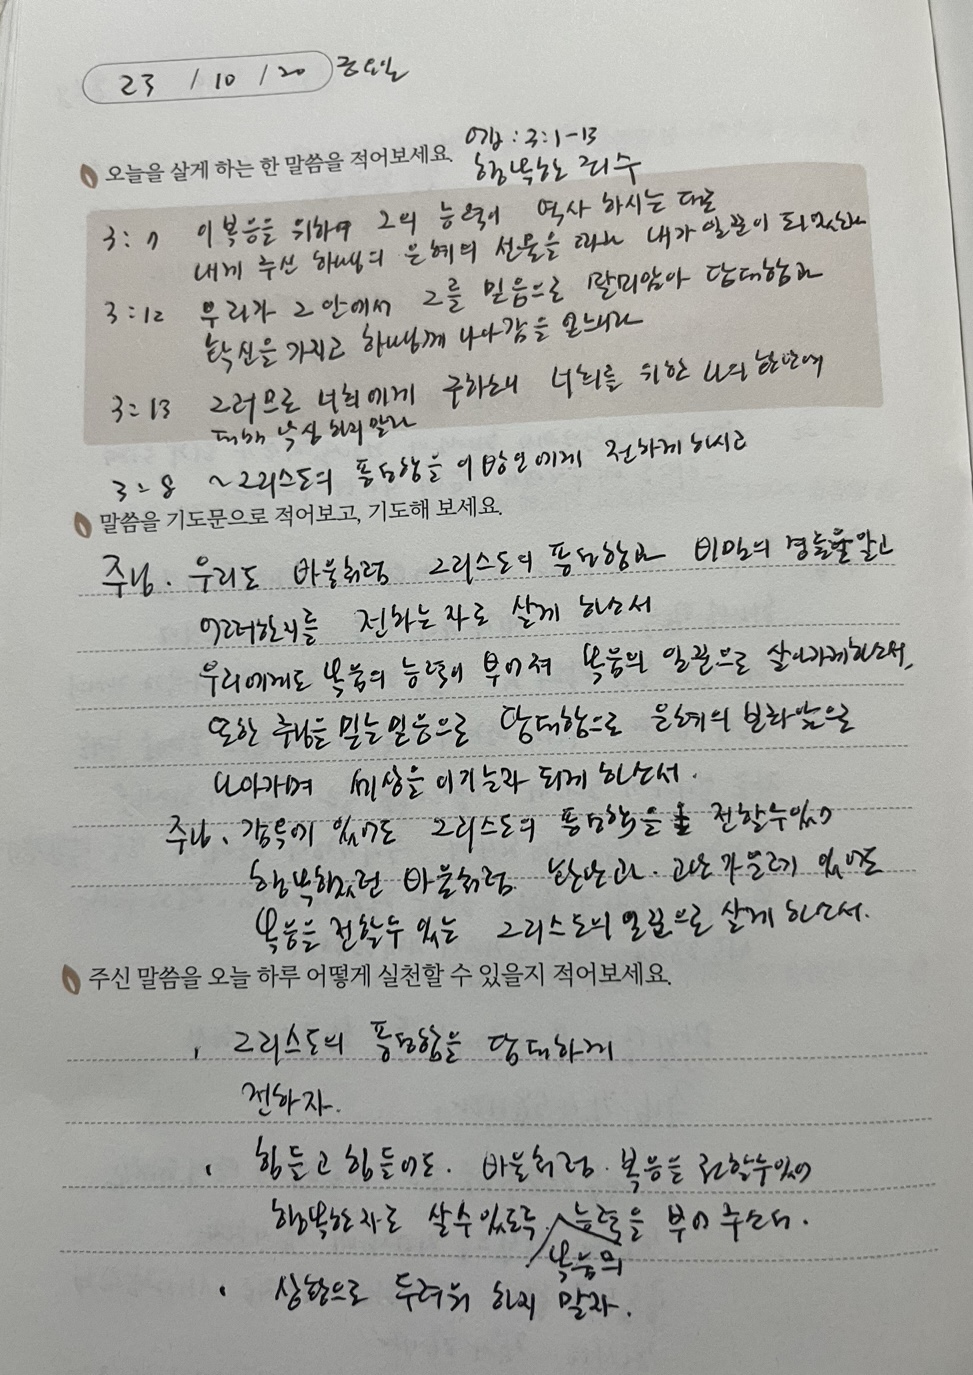 23 / 10 / 20 금요일
엡 : 3:1-13
오늘을 살게 하는 한 말씀을 적어보세요.
행복한 죄수
3:7 이 복음을 위하여 그의 능력이 역사 하시는 대로
내게 주신 하나님의 은혜의 선물을 따라 내가 일꾼이 되었노라
3:12 우리가 그 안에서 그를 믿음으로 말미암아 담대함과
확신을 가지고 하나님께 나아감을 얻느니라
3:13 그러므로 너희에게 구하노니 너희를 위한 나의 환난에
대해 낙심 하지 말라
3:8 ~그리스도의 풍성함을 이방인에게 전하게 하시고
말씀을 기도문으로 적어보고, 기도해 보세요.
주님. 우리도 바울처럼 그리스도의 풍성함과 비밀의 경륜을 알고
전하는 자로 살게 하소서
우리에게도 복음의 능력이 부어져 복음의 일꾼으로 살아가게 하소서.
또한 주님을 믿는 믿음으로 담대함으로 은혜의 보좌앞으로
나아가며 세상을 이기는자 되게 하소서.
주님. 감옥에 있어도 그리스도의 풍성함을 전할수있어
행복했던 바울처럼. 환난과. 고난 가운데 있어도
복음을 전할수 있는 그리스도의 일꾼으로 살게 하소서.
주신 말씀을 오늘 하루 어떻게 실천할 수 있을지 적어보세요.
· 그리스도의 풍성함을 담대하게
전하자.
· 힘들고 힘들어도. 바울처럼. 복음을 전할수있어
행복한 자로 살수있도록. 능력을 부어 주소서.
복음의
· 상황으로 두려워 하지 말라.